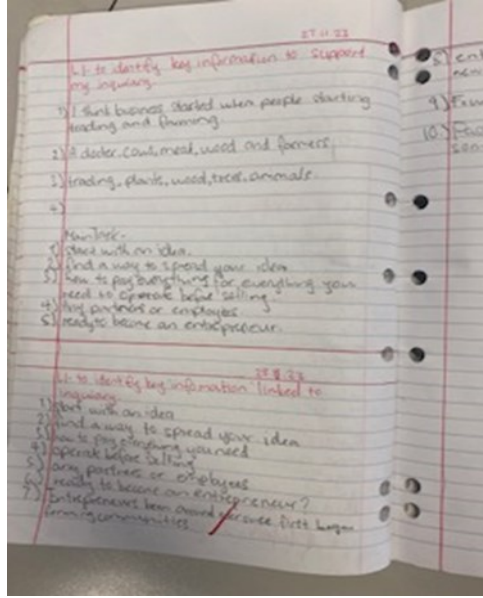 27.11.23
L1- to identify key information to support
my inquiary.
1) I think business started when people starting
trading and farming.
2) A docter, cows, meat, wood and farmers.
3) trading, plants, wood, trees, ammals.
4)
Main Task-
1) start with an idea
2) find a way to spread your idea
3) how to pay everything for everything your
need to operate before selling.
4) Any partners or employees
5) ready to become an entrepreneur.
L1- to identify key information linked to
inquiary
1) start with an idea
2) find a way to spread your idea
3) how to pay everything you need
4) operate before selling
5) any partners or employees
6) ready to become an entrepreneur?
7) Entrepreneurs been around first began
farming communities
8) ent
9)
10)